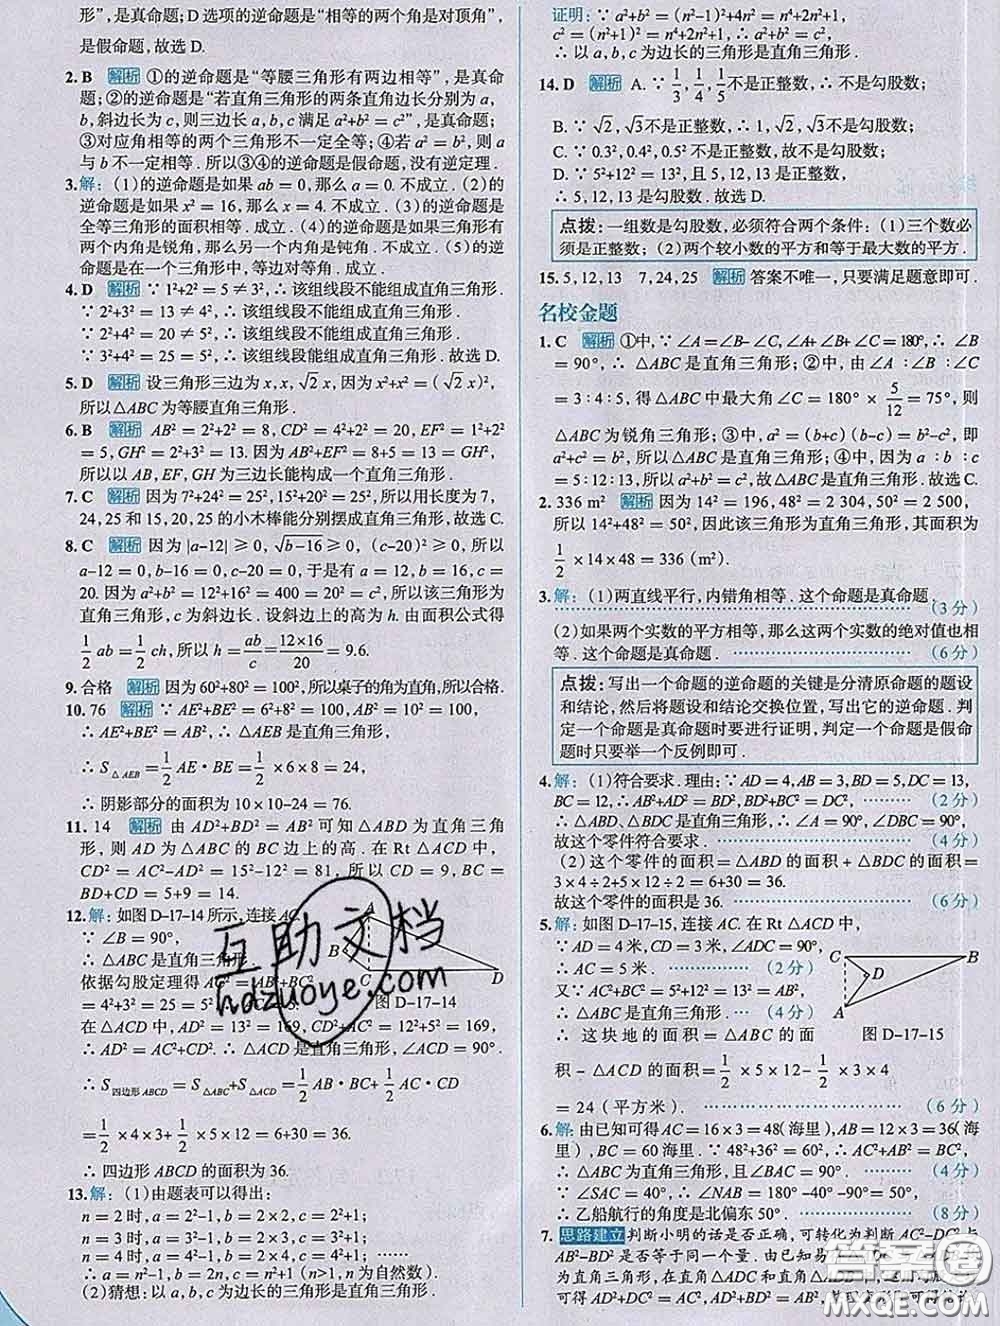 形”，是真命题；D 选项的逆命题是“相等的两个角是对顶角”，
是假命题，故选 D.
2. B 解析 ①的逆命题是“等腰三角形有两边相等”，是真命
题；②的逆命题是“若直角三角形的两条直角边长分别为 a，
b，斜边长为 c，则三边长满足 a²+b²=c²”，是真命题；
③对应角相等的两个三角形不一定全等；④若 a²=b²，则 a
与 b 不一定相等．所以③④的逆命题是假命题，没有逆定理．
3. 解：(1)的逆命题是如果 ab=0，那么 a=0. 不成立．(2)的
逆命题是如果 x²=16，那么 x=4. 不成立．(3)的逆命题是
全等三角形的面积相等．成立．(4)的逆命题是如果三角形有
两个内角是锐角，那么另一个内角是钝角．不成立．(5)的逆
命题是在一个三角形中，等边对等角．成立．
4. D 解析 ∵ 1²+2²=5≠3²，∴ 该组线段不能组成直角三角形．
∵ 2²+3²=13≠4²，∴ 该组线段不能组成直角三角形．
∵ 2²+4²=20≠5²，∴ 该组线段不能组成直角三角形．
∵ 3²+4²=25=5²，∴ 该组线段能组成直角三角形．故选 D.
5. D 解析 设三角形三边为 x，x，√2 x，因为 x²+x²=(√2 x)²，
所以 △ABC 为等腰直角三角形．
6. B 解析 AB²=2²+2²=8，CD²=4²+2²=20，EF²=1²+2²
=5，GH²=2²+3²=13. 因为 AB²+EF²=8+5=13=GH²，
所以以 AB，EF，GH 为三边长能构成一个直角三角形．
7. C 解析 因为 7²+24²=25²，15²+20²=25²，所以用长度为 7，
24，25 和 15，20，25 的小木棒能分别摆成直角三角形，故选 C.
8. C 解析 因为 |a-12|≥0，√(b-16)≥0，(c-20)²≥0，所以
a-12=0，b-16=0，c-20=0，于是有 a=12，b=16，c=
20. 因为 a²+b²=12²+16²=400=20²=c²，所以该三角形为
直角三角形，c 为斜边长．设斜边上的高为 h. 由面积公式得
1/2 ab=1/2 ch，所以 h=ab/c=12×16/20=9.6.
9. 合格 解析 因为 60²+80²=100²，所以桌子的角为直角，所以合格．
10. 76 解析 ∵ AE²+BE²=6²+8²=100，AB²=10²=100，
∴ AE²+BE²=AB²，∴ △AEB 是直角三角形，
∴ S△AEB=1/2 AE·BE=1/2 ×6×8=24，
∴ 阴影部分的面积为 10×10-24=76.
11. 14 解析 由 AD²+BD²=AB² 可知 △ABD 为直角三角
形，则 AD 为 △ABC 的 BC 边上的高．在 Rt △ACD 中，
CD²=AC²-AD²=15²-12²=81，所以 CD=9，BC=
BD+CD=5+9=14.
12. 解：如图 D-17-14 所示，连接 AC.
∵ ∠B=90°，
∴ △ABC 为直角三角形．
依据勾股定理得 AC²=AB²+BC²
=4²+3²=25，∴ AC=5.
A B C D
图 D-17-14
在 △ACD 中，AD²=13²=169，CD²+AC²=12²+5²=169，
∴ AD²=AC²+CD²．∴ △ACD 是直角三角形，∠ACD=90°．
∴ S四边形ABCD=S△ABC+S△ACD=1/2 AB·BC+1/2 AC·CD
=1/2 ×4×3+1/2 ×5×12=6+30=36.
∴ 四边形 ABCD 的面积为 36.
13. 解：(1)由题表可以得出：
n=2 时，a=2²-1，b=2×2，c=2²+1；
n=3 时，a=3²-1，b=2×3，c=3²+1；
n=4 时，a=4²-1，b=2×4，c=4²+1；
∴ a=n²-1，b=2n，c=n²+1 (n>1，n 为自然数)．
(2)猜想：以 a，b，c 为边长的三角形是直角三角形．
证明：∵ a²+b²=(n²-1)²+4n²=n⁴+2n²+1，
c²=(n²+1)²=n⁴+2n²+1，∴ a²+b²=c²，
∴ 以 a，b，c 为边长的三角形是直角三角形．
14. D 解析 A. ∵ 1/3，1/4，1/5 不是正整数，∴ 不是勾股数；
B. ∵ √2，√3不是正整数，∴ 1，√2，√3不是勾股数；
C. ∵ 0.3²，0.4²，0.5²不是正整数，故不是勾股数；
D. ∵ 5²+12²=13²，且 5，12，13 是正整数，
∴ 5，12，13 是勾股数．故选 D.
点拨：一组数是勾股数，必须符合两个条件：(1)三个数必
须是正整数；(2)两个较小数的平方和等于最大数的平方．
15. 5，12，13 7，24，25 解析 答案不唯一，只要满足题意即可．
名校金题
1. C 解析 ①中，∵ ∠A=∠B-∠C，∠A+∠B+∠C=180°，∴ ∠B
=90°，∴ △ABC 是直角三角形；②中，由 ∠A：∠B：∠C
=3：4：5，得 △ABC 中最大角 ∠C=180°×5/12=75°，则
△ABC 为锐角三角形；③中，a²=(b+c)(b-c)=b²-c²，即
a²+c²=b²，故 △ABC 是直角三角形；④中，因为 a：b：c
=5：12：13，所以 a²+b²=c²，故 △ABC 是直角三角形．故选 C.
2. 336 m² 解析 因为 14²=196，48²=2 304，50²=2 500，
所以 14²+48²=50²，因此该三角形为直角三角形，其面积为
1/2 ×14×48=336 (m²).
3. 解：(1)两直线平行，内错角相等．这个命题是真命题．
(3 分)
(2)如果两个实数的平方相等，那么这两个实数的绝对值也相
等．这个命题是真命题．(6 分)
点拨：写出一个命题的逆命题的关键是分清原命题的题设
和结论，然后将题设和结论交换位置，写出它的逆命题．判
定一个命题是真命题时要进行证明，判定一个命题是假命
题时只要举一个反例即可．
4. 解：(1)符合要求．理由：∵ AD=4，AB=3，BD=5，DC=13，
BC=12，∴ AB²+AD²=BD²，BD²+BC²=DC²，(2 分)
∴ △ABD、△BDC 是直角三角形，∴ ∠A=90°，∠DBC=90°，
故这个零件符合要求．(4 分)
(2)这个零件的面积=△ABD 的面积+△BDC 的面积=
3×4÷2+5×12÷2=6+30=36.
故这个零件的面积是 36.(6 分)
5. 解：如图 D-17-15，连接 AC. 在 Rt △ACD 中，
∵ AD=4 米，CD=3 米，∠ADC=90°，
∴ AC=5 米．(2 分)
又∵ AC²+BC²=5²+12²=13²=AB²，
∴ △ABC 是直角三角形．(4 分)
C B D A
图 D-17-15
∴ 这块地的面积=△ABC 的面
积-△ACD 的面积=1/2 ×5×12-1/2 ×3×4
=24（平方米）．(6 分)
6. 解：由已知可得 AC=16×3=48（海里），AB=12×3=36（海
里），BC=60 海里．∵ 48²+36²=60²，∴ AC²+AB²=BC²，
∴ △ABC 为直角三角形，且 ∠BAC=90°．(4 分)
∵ ∠SAC=40°，∴ ∠NAB=180°-90°-40°=50°，
∴ 乙船航行的角度是北偏东 50°．(8 分)
7. 思路建立 判断小明的话是否正确，可转化为判断 AC²-DC²与
AB²-BD²是否等于同一个量．由已知易
为直角三角形，在直角△ADC 和直角△
可得 AD²+DC²=AC²，AD²+BD²=AB²，
互助文档
hdzuoye.com
答案圈
MXQE.COM